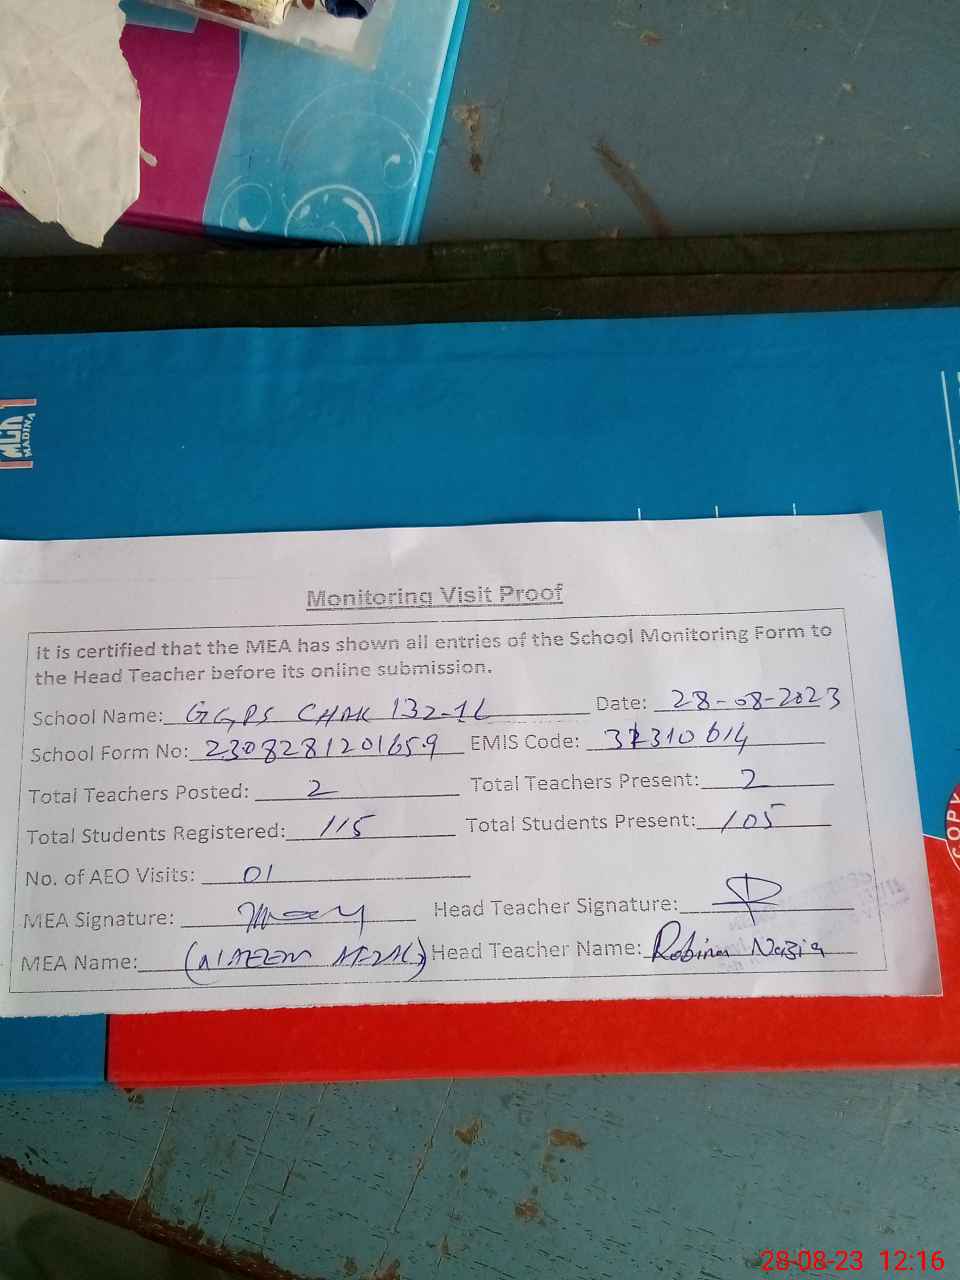 MADINA
COPY
Monitoring Visit Proof
it is certified that the MEA has shown all entries of the School Monitoring Form to
the Head Teacher before its online submission.
School Name: GGPS CHAK 132-1L Date: 28-08-2023
School Form No: 2308281201659 EMIS Code: 37310614
Total Teachers Posted: 2 Total Teachers Present: 2
Total Students Registered: 115 Total Students Present: 105
No. of AEO Visits: 01
MEA Signature: Head Teacher Signature:
MEA Name: (NAEEM Head Teacher Name: Robina Nazia
28-08-23 12:16